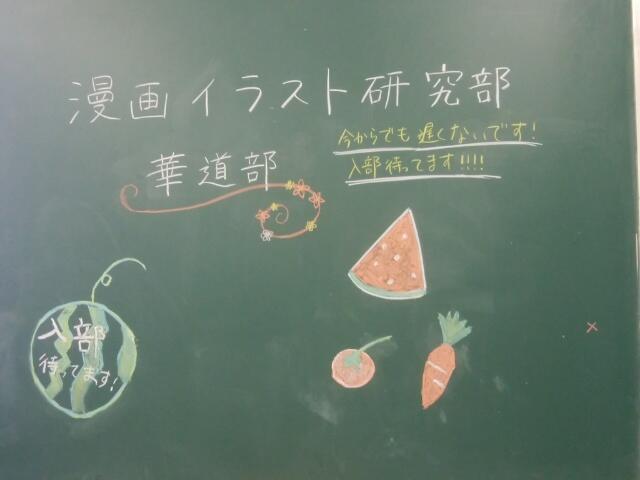 漫画イラスト研究部
今からでも遅くないです!
入部待ってます!!!!
華道部
入部
待ってます!